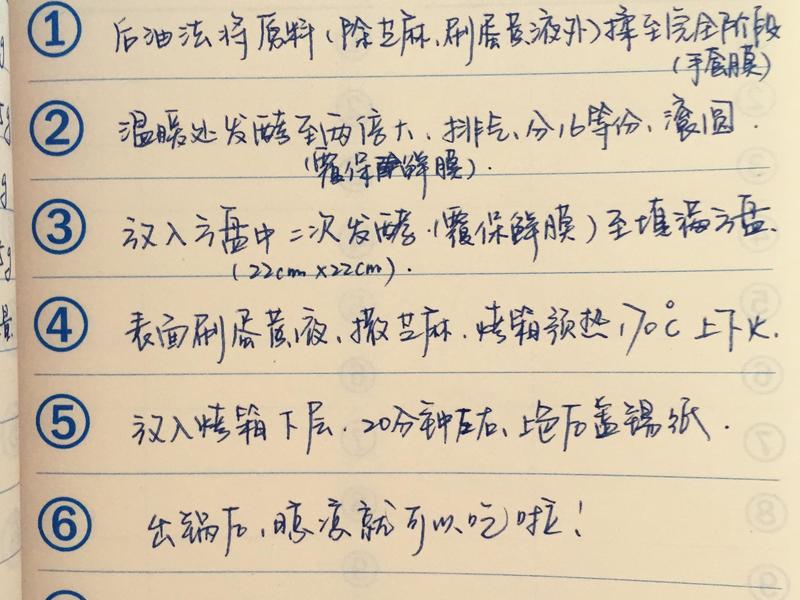 ① 后油法将原料(除芝麻、刷蛋黄液外)揉至完全阶段
(手套膜)
② 温暖处发酵至两倍大、排气、分16等份、滚圆.
(覆保鲜膜).
③ 放入方盘中二次发酵.(覆保鲜膜)至填满方盘.
(22cm×22cm).
④ 表面刷蛋黄液、撒芝麻.烤箱预热170℃上下火.
⑤ 放入烤箱下层.20分钟左右、上色后盖锡纸.
⑥ 出锅后、晾凉就可以吃啦!